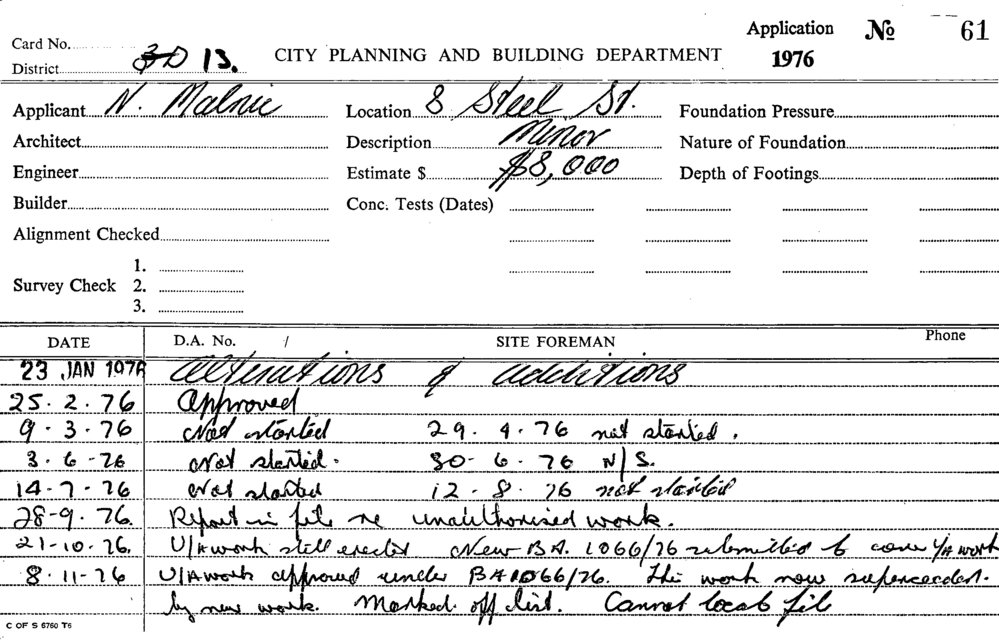 Application No 61
Card No.
District 3D 13. CITY PLANNING AND BUILDING DEPARTMENT 1976
Applicant N. Malnic Location 8 Steel St. Foundation Pressure
Architect Description Minor Nature of Foundation
Engineer Estimate $ $8,000 Depth of Footings
Builder Conc. Tests (Dates)
Alignment Checked
1.
Survey Check 2.
3.
DATE D.A. No. / SITE FOREMAN Phone
23 JAN 1976 Alterations & additions
25.2.76 Approved
9.3.76 Not started 29.4.76 not started.
3.6-76 Not started. 30-6-76 N/S.
14-7-76 Not started 12-8.76 not started
28-9.76. Report in file re unauthorised work.
21-10-76. U/A work still erected New BA. 1066/76 submitted to cover U/A work
8.11-76 U/A work approved under BA1066/76. This work now superceeded.
by new work. Marked off list. Cannot locat file
C OF S 6760 T6